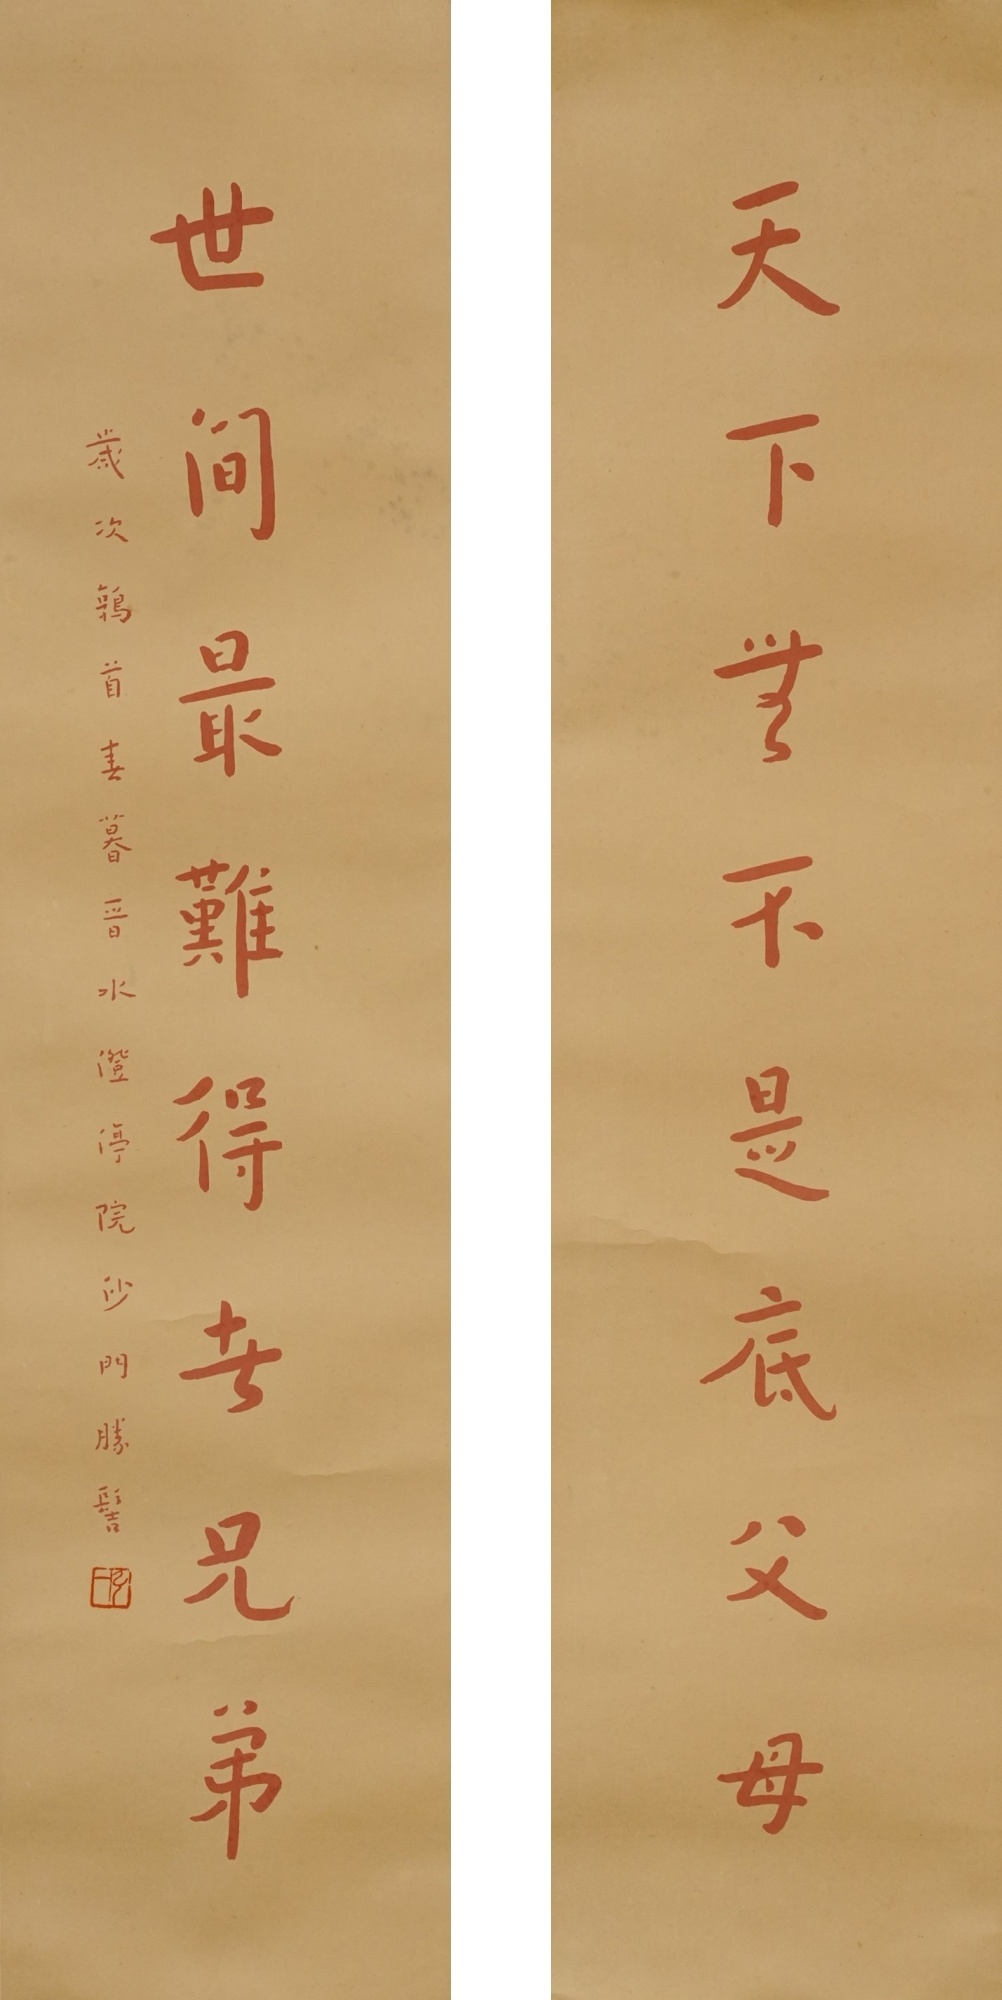 天下無不是底父母
世间最難得者兄弟
歲次鶉首春暮晉水澄渟院沙門勝髻